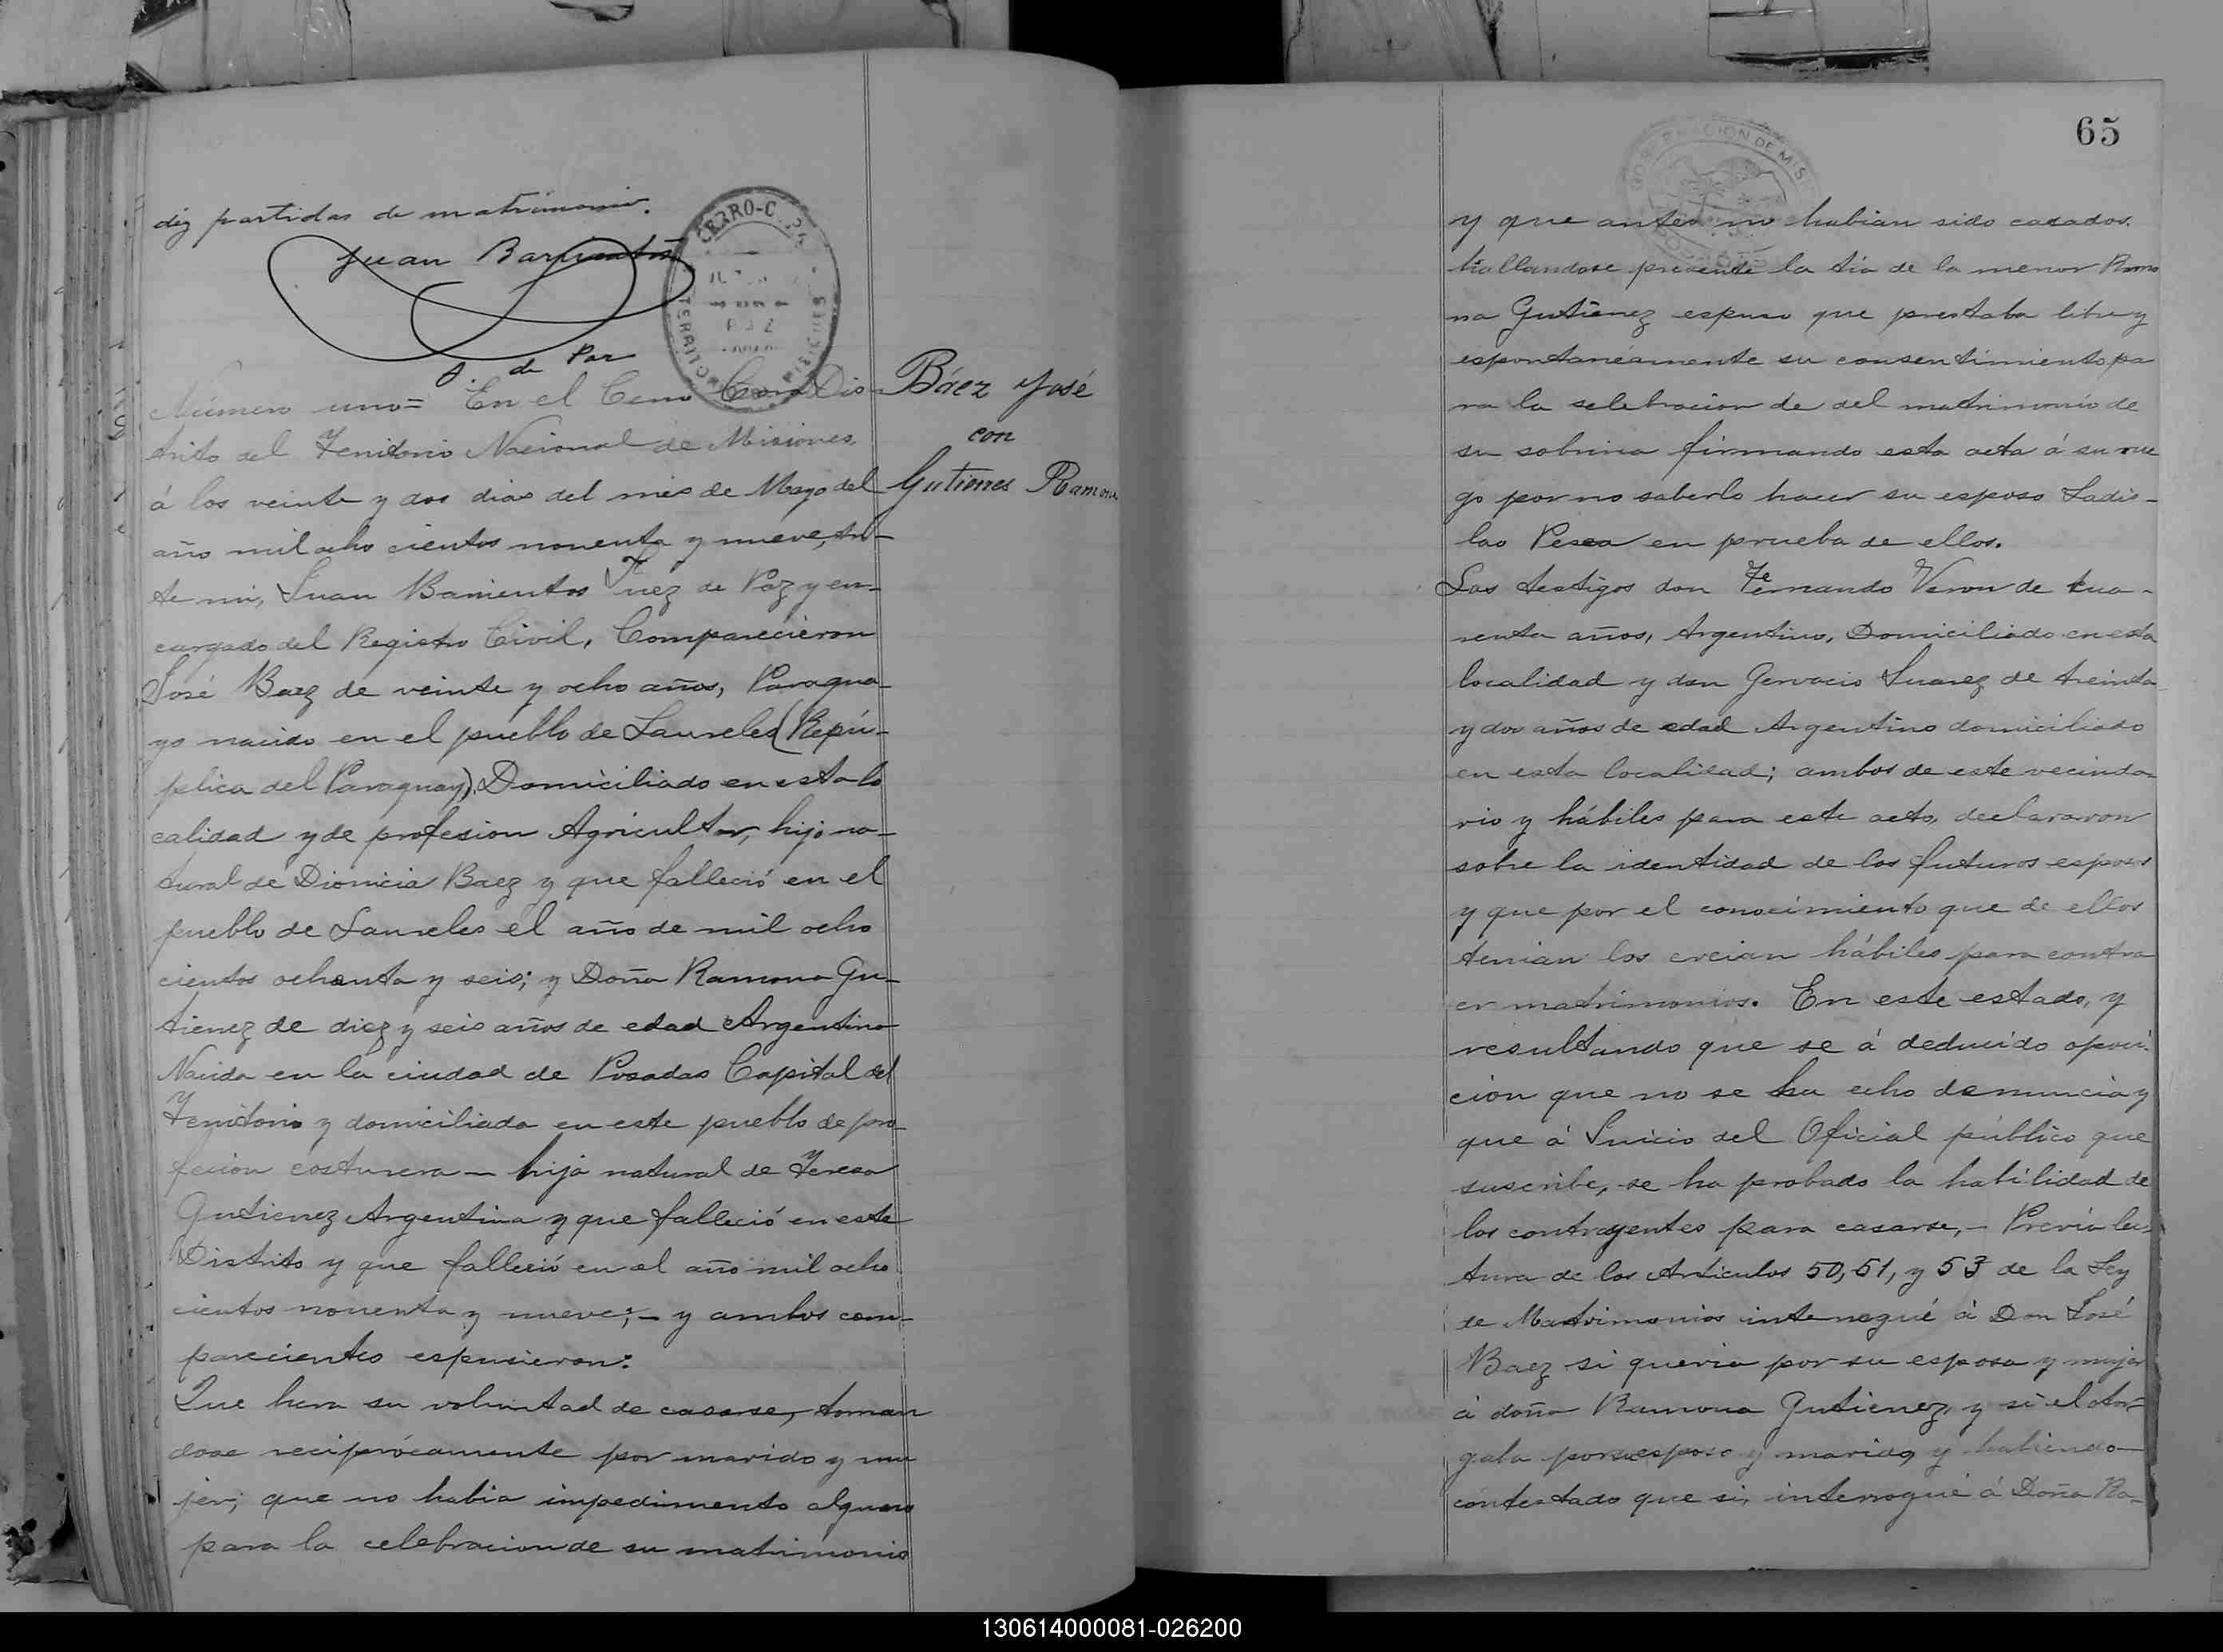 diez partidas de matrimonio.
Juan Barrientos
J. de Paz
CERRO-C
TERRITORIO MISIONES
Número uno= En el Cerro Corá Dis
trito del Territorio Nacional de Misiones
á los veinte y dos dias del mes de Mayo del
año mil ocho cientos noventa y nueve, an-
te mi, Juan Barrientos Juez de Paz y en-
cargado del Registro Civil, Comparecieron
José Baez de veinte y ocho años, Paragua-
yo nacido en el pueblo de Laureles (Repú-
plica del Paraguay), Domiciliado en esta lo
calidad y de profesion Agricultor, hijo na-
tural de Dionicia Baez y que falleció en el
pueblo de Laureles el año de mil ocho
cientos ochenta y seis; y Doña Ramona Gu-
tierrez de diez y seis años de edad Argentina
Nacida en la ciudad de Posadas Capital del
Territorio y domiciliada en este pueblo de pro
fecion costurera - hija natural de Teresa
Gutierrez Argentina y que falleció en este
Distrito y que falleció en el año mil ocho
cientos noventa y nueve; - y ambos com-
parecientes espusieron:
Que hera su voluntad de casarse, toman
dose recíprócamente por marido y mu
jer; que no habia impedimento alguno
para la celebracion de su matrimonio
Báez José
con
Gutierres Ramona
65
GOBERNACION DE MIS
y que antes no habian sido casados.
hallandose presente la tia de la menor Ramo
na Gutierrez espuso que prestaba libre y
espontanéamente su consentimiento pa
ra la selebracion de del matrimonio de
su sobrina firmando esta acta á su rue
go por no saberlo hacer su esposo Ladis-
lao Pesoa en prueba de ellos.
Los testigos don Fernando Veron de cua-
renta años, Argentino, Domiciliado en esta
localidad y don Gervacio Suarez de treinta
y dos años de edad Argentino domiciliado
en esta localidad; ambos de este vecinda-
rio y hábiles para este acto, declararon
sobre la identidad de los futuros esposos
y que por el conocimiento que de ellos
tenian los creian hábiles para contra
er matrimonios. En este estado, y
resultando que se á deducido oposi-
cion que no se ha echo denuncia y
que á Juicio del Oficial público que
suscribe, se ha probado la habilidad de
los contrayentes para casarse, - Previa lec-
tura de los Articulos 50, 51, y 53 de la Ley
de Matrimonios interrogué á Don José
Baez si queria por su esposa y mujer
á doña Ramona Gutierrez, y si el otor-
gaba por su esposo y marido, y habiendo
contestado que si, interrogué á Doña Ra-
130614000081-026200